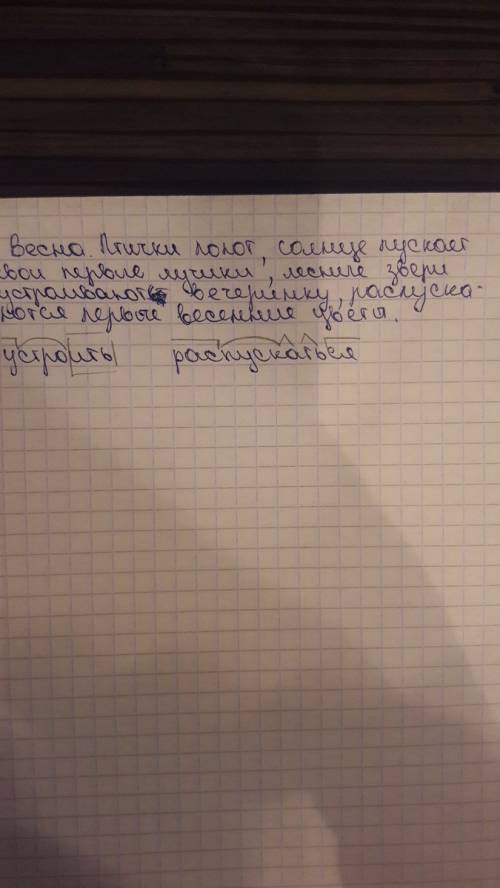 Весна. Птички поют, солнце пускает
свои первые лучики, лесные звери
устраивают вечеринку, распуска-
ются первые весенние цветы.
устроить распускаться